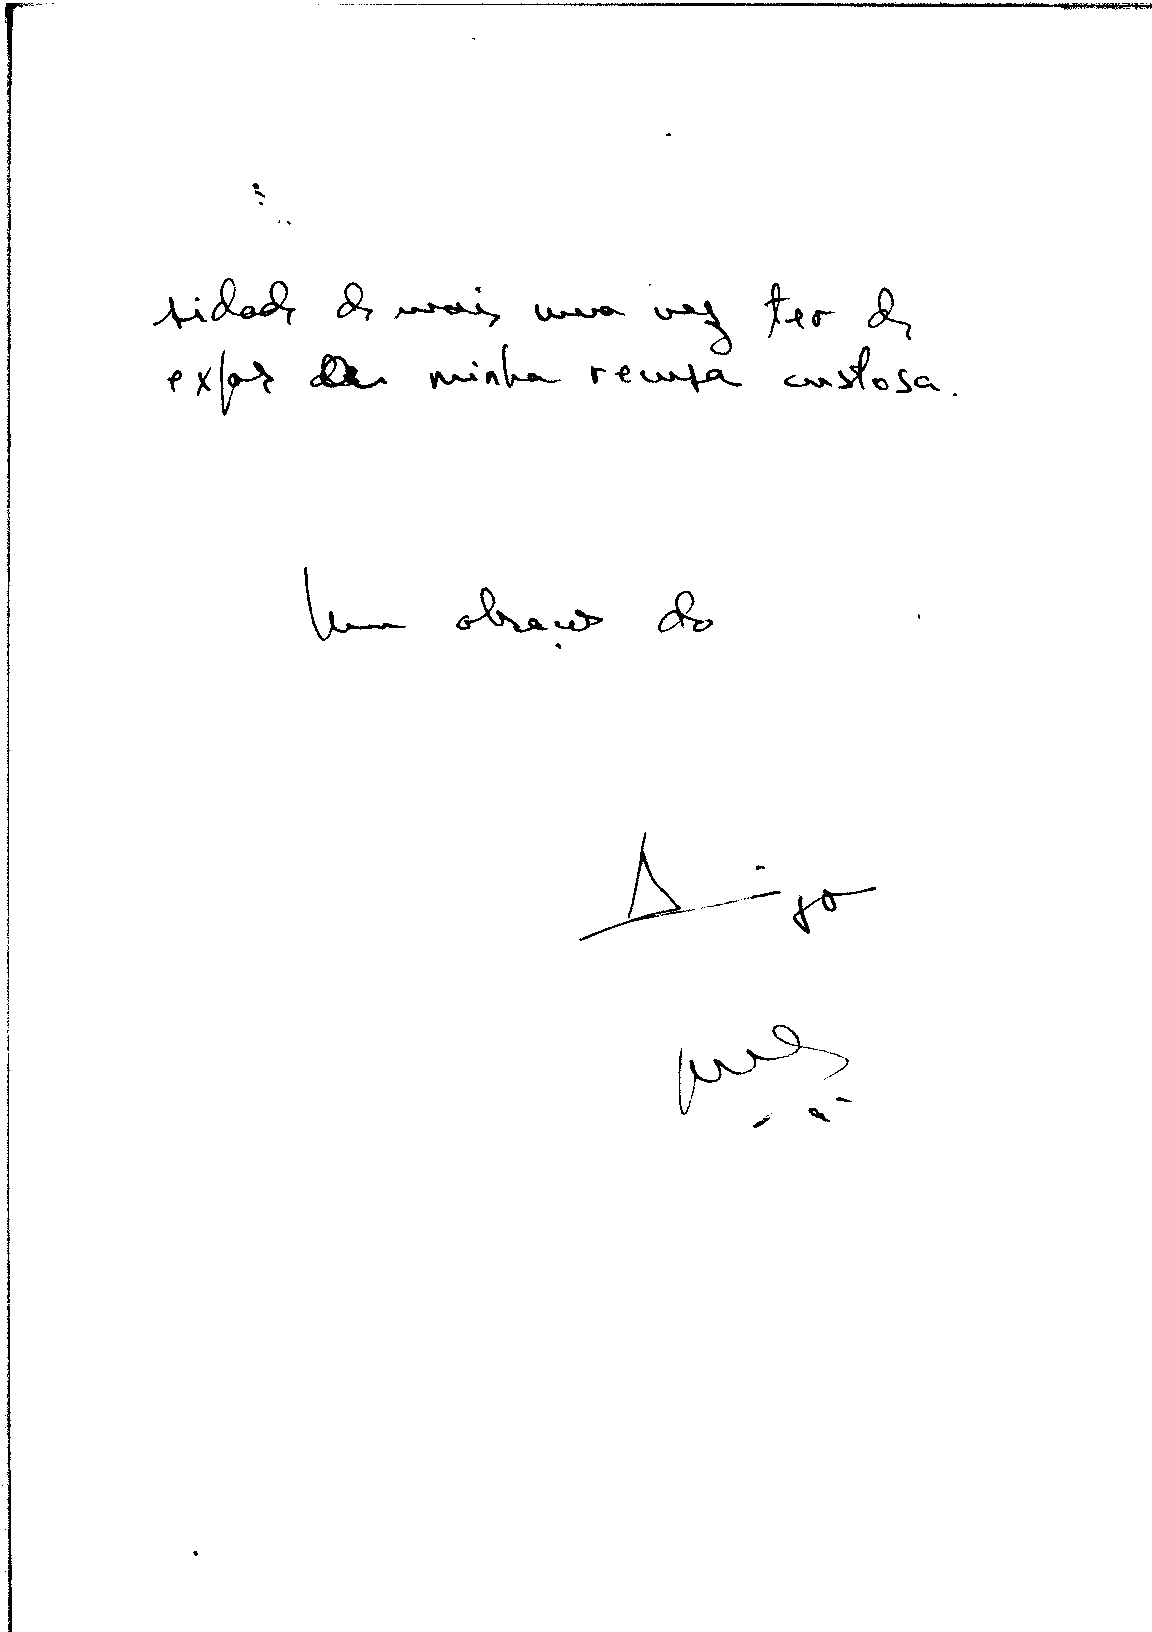 sidade de mais uma vez ter de
expor a minha recusa custosa.
Um abraço do
Amigo